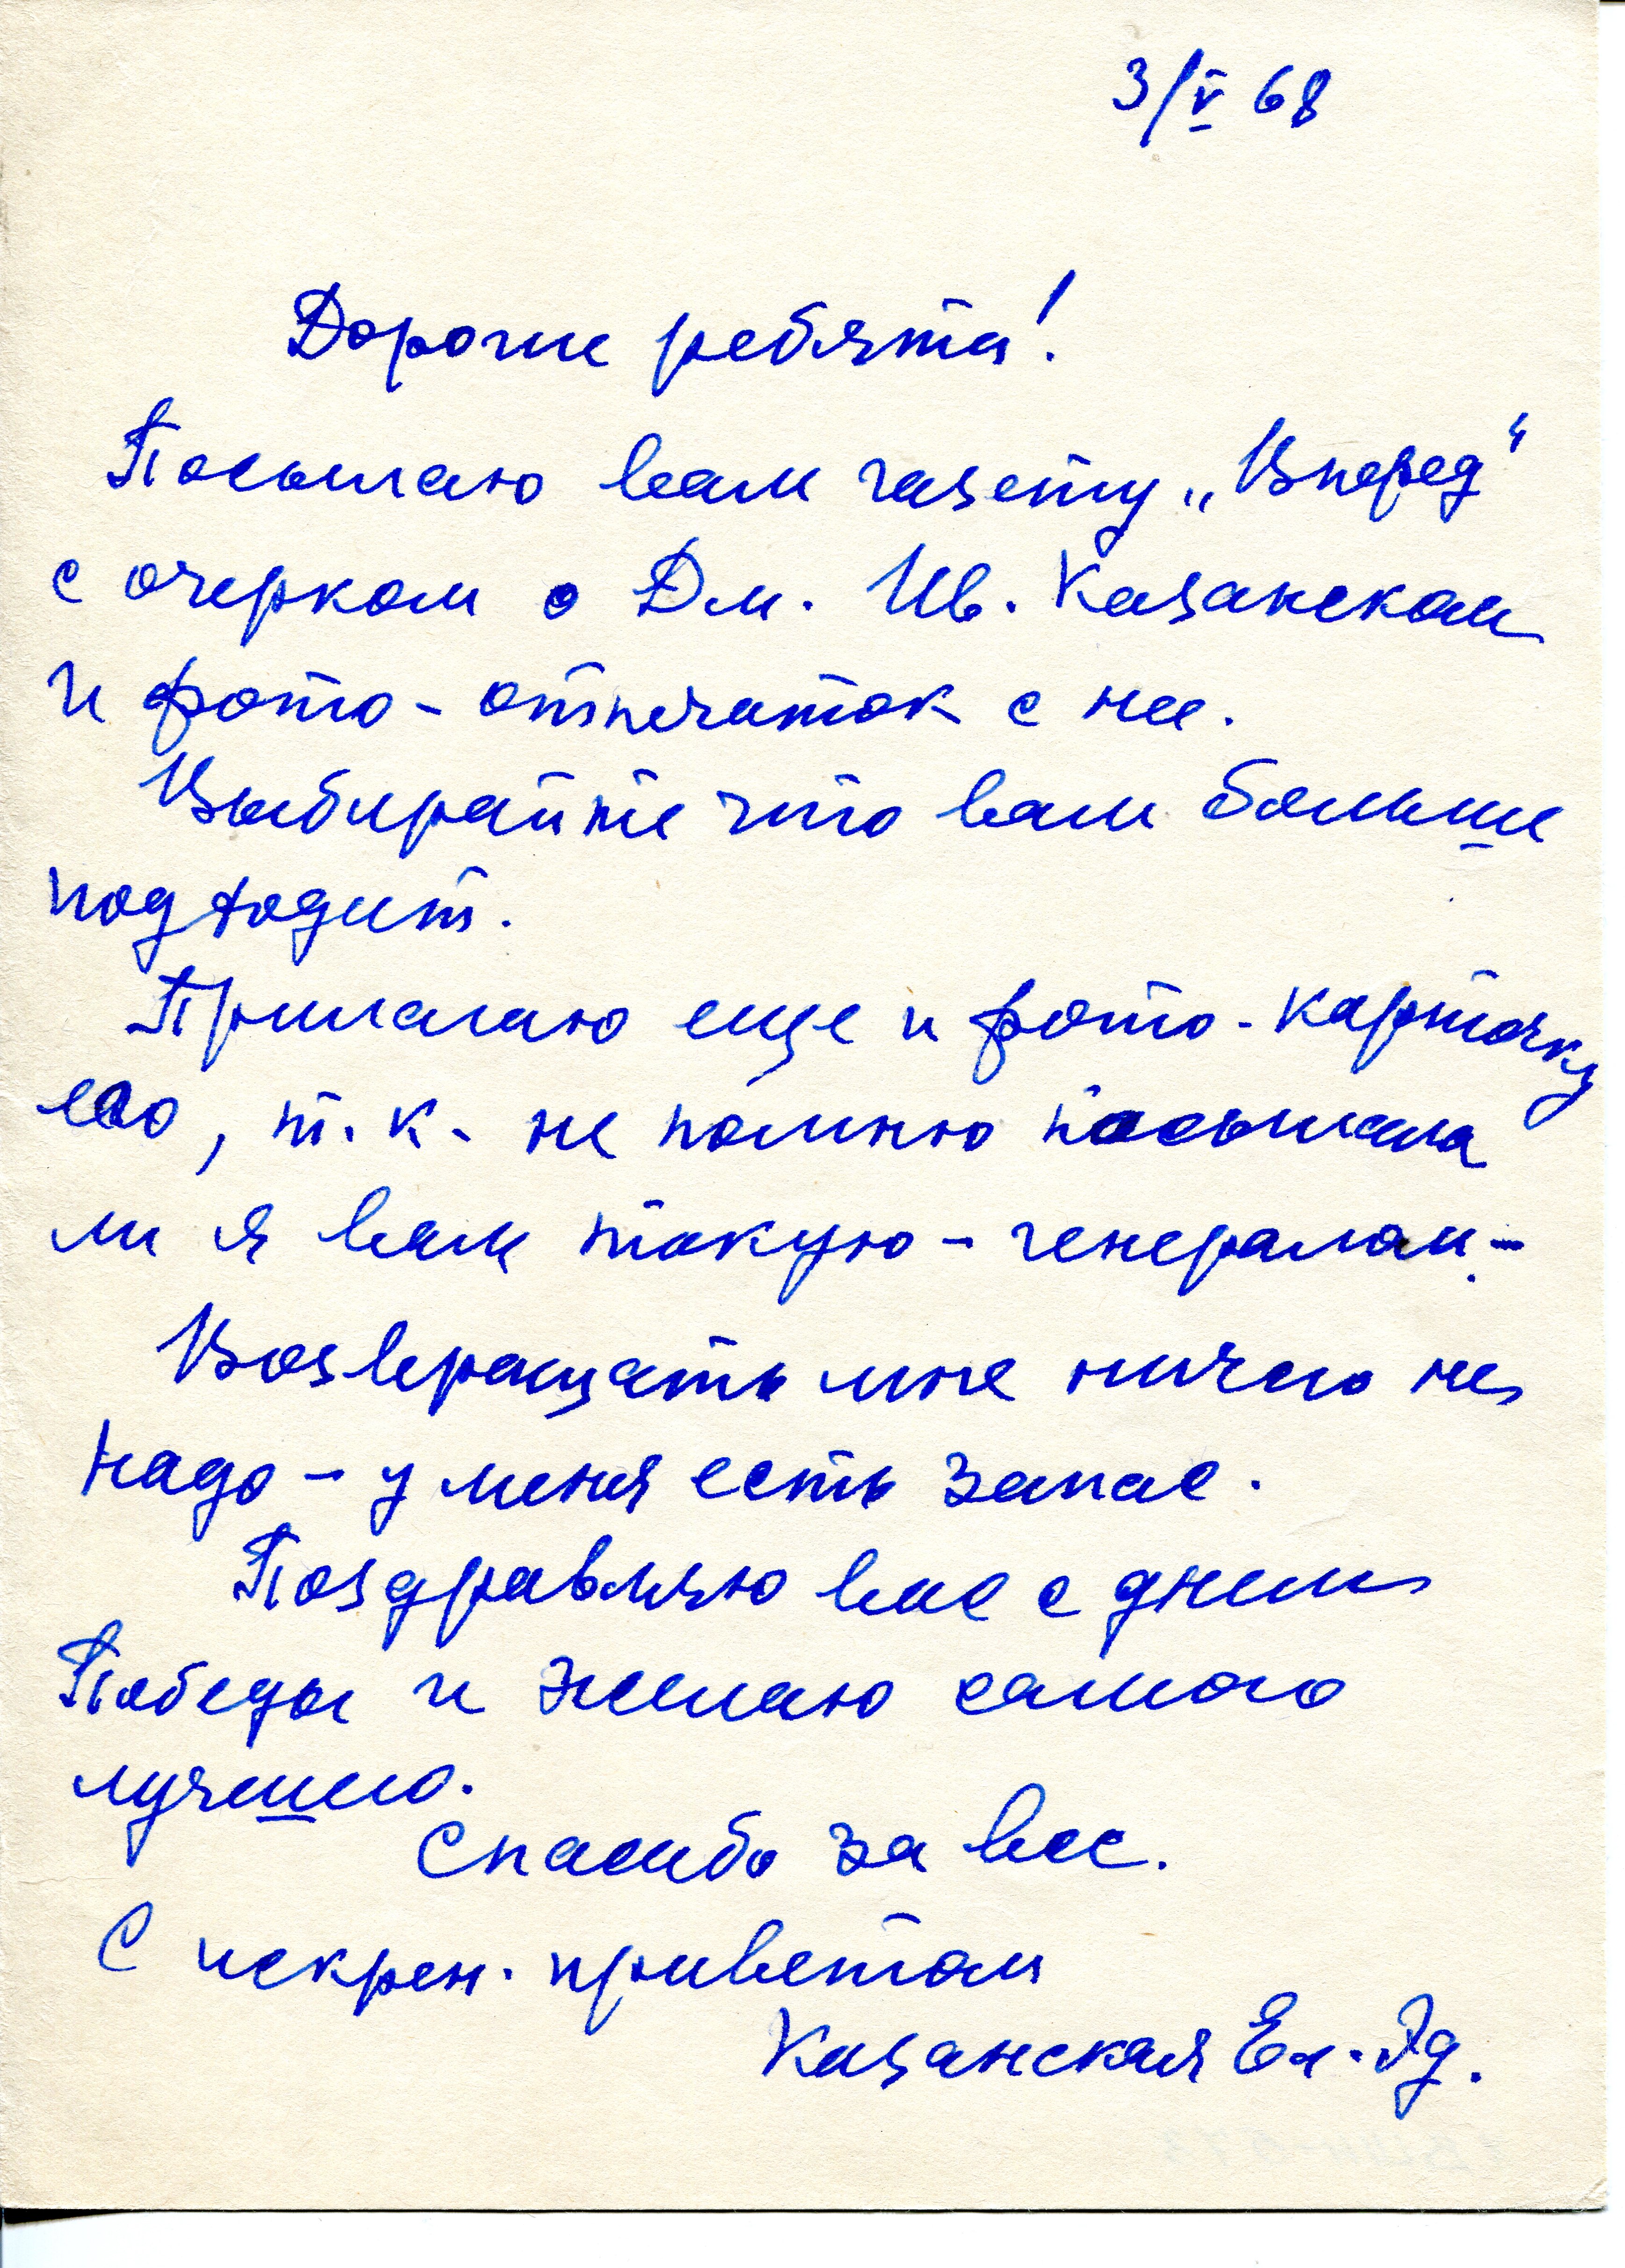 3/V 68
Дорогие ребята!
Посылаю вам газету „Вперед“
с очерком о Дм. Ив. Казанском
и фото-отпечаток с нее.
Выбирайте что вам больше
подходит.
Прилагаю еще и фото-карточку
его, т.к. не помню посылала
ли я вам такую - генералом. -
Возвращать мне ничего не
надо - у меня есть запас.
Поздравляю вас с днем
Победы и желаю самого
лучшего.
Спасибо за все.
С искрен. приветом
Казанская Ел. Эд.